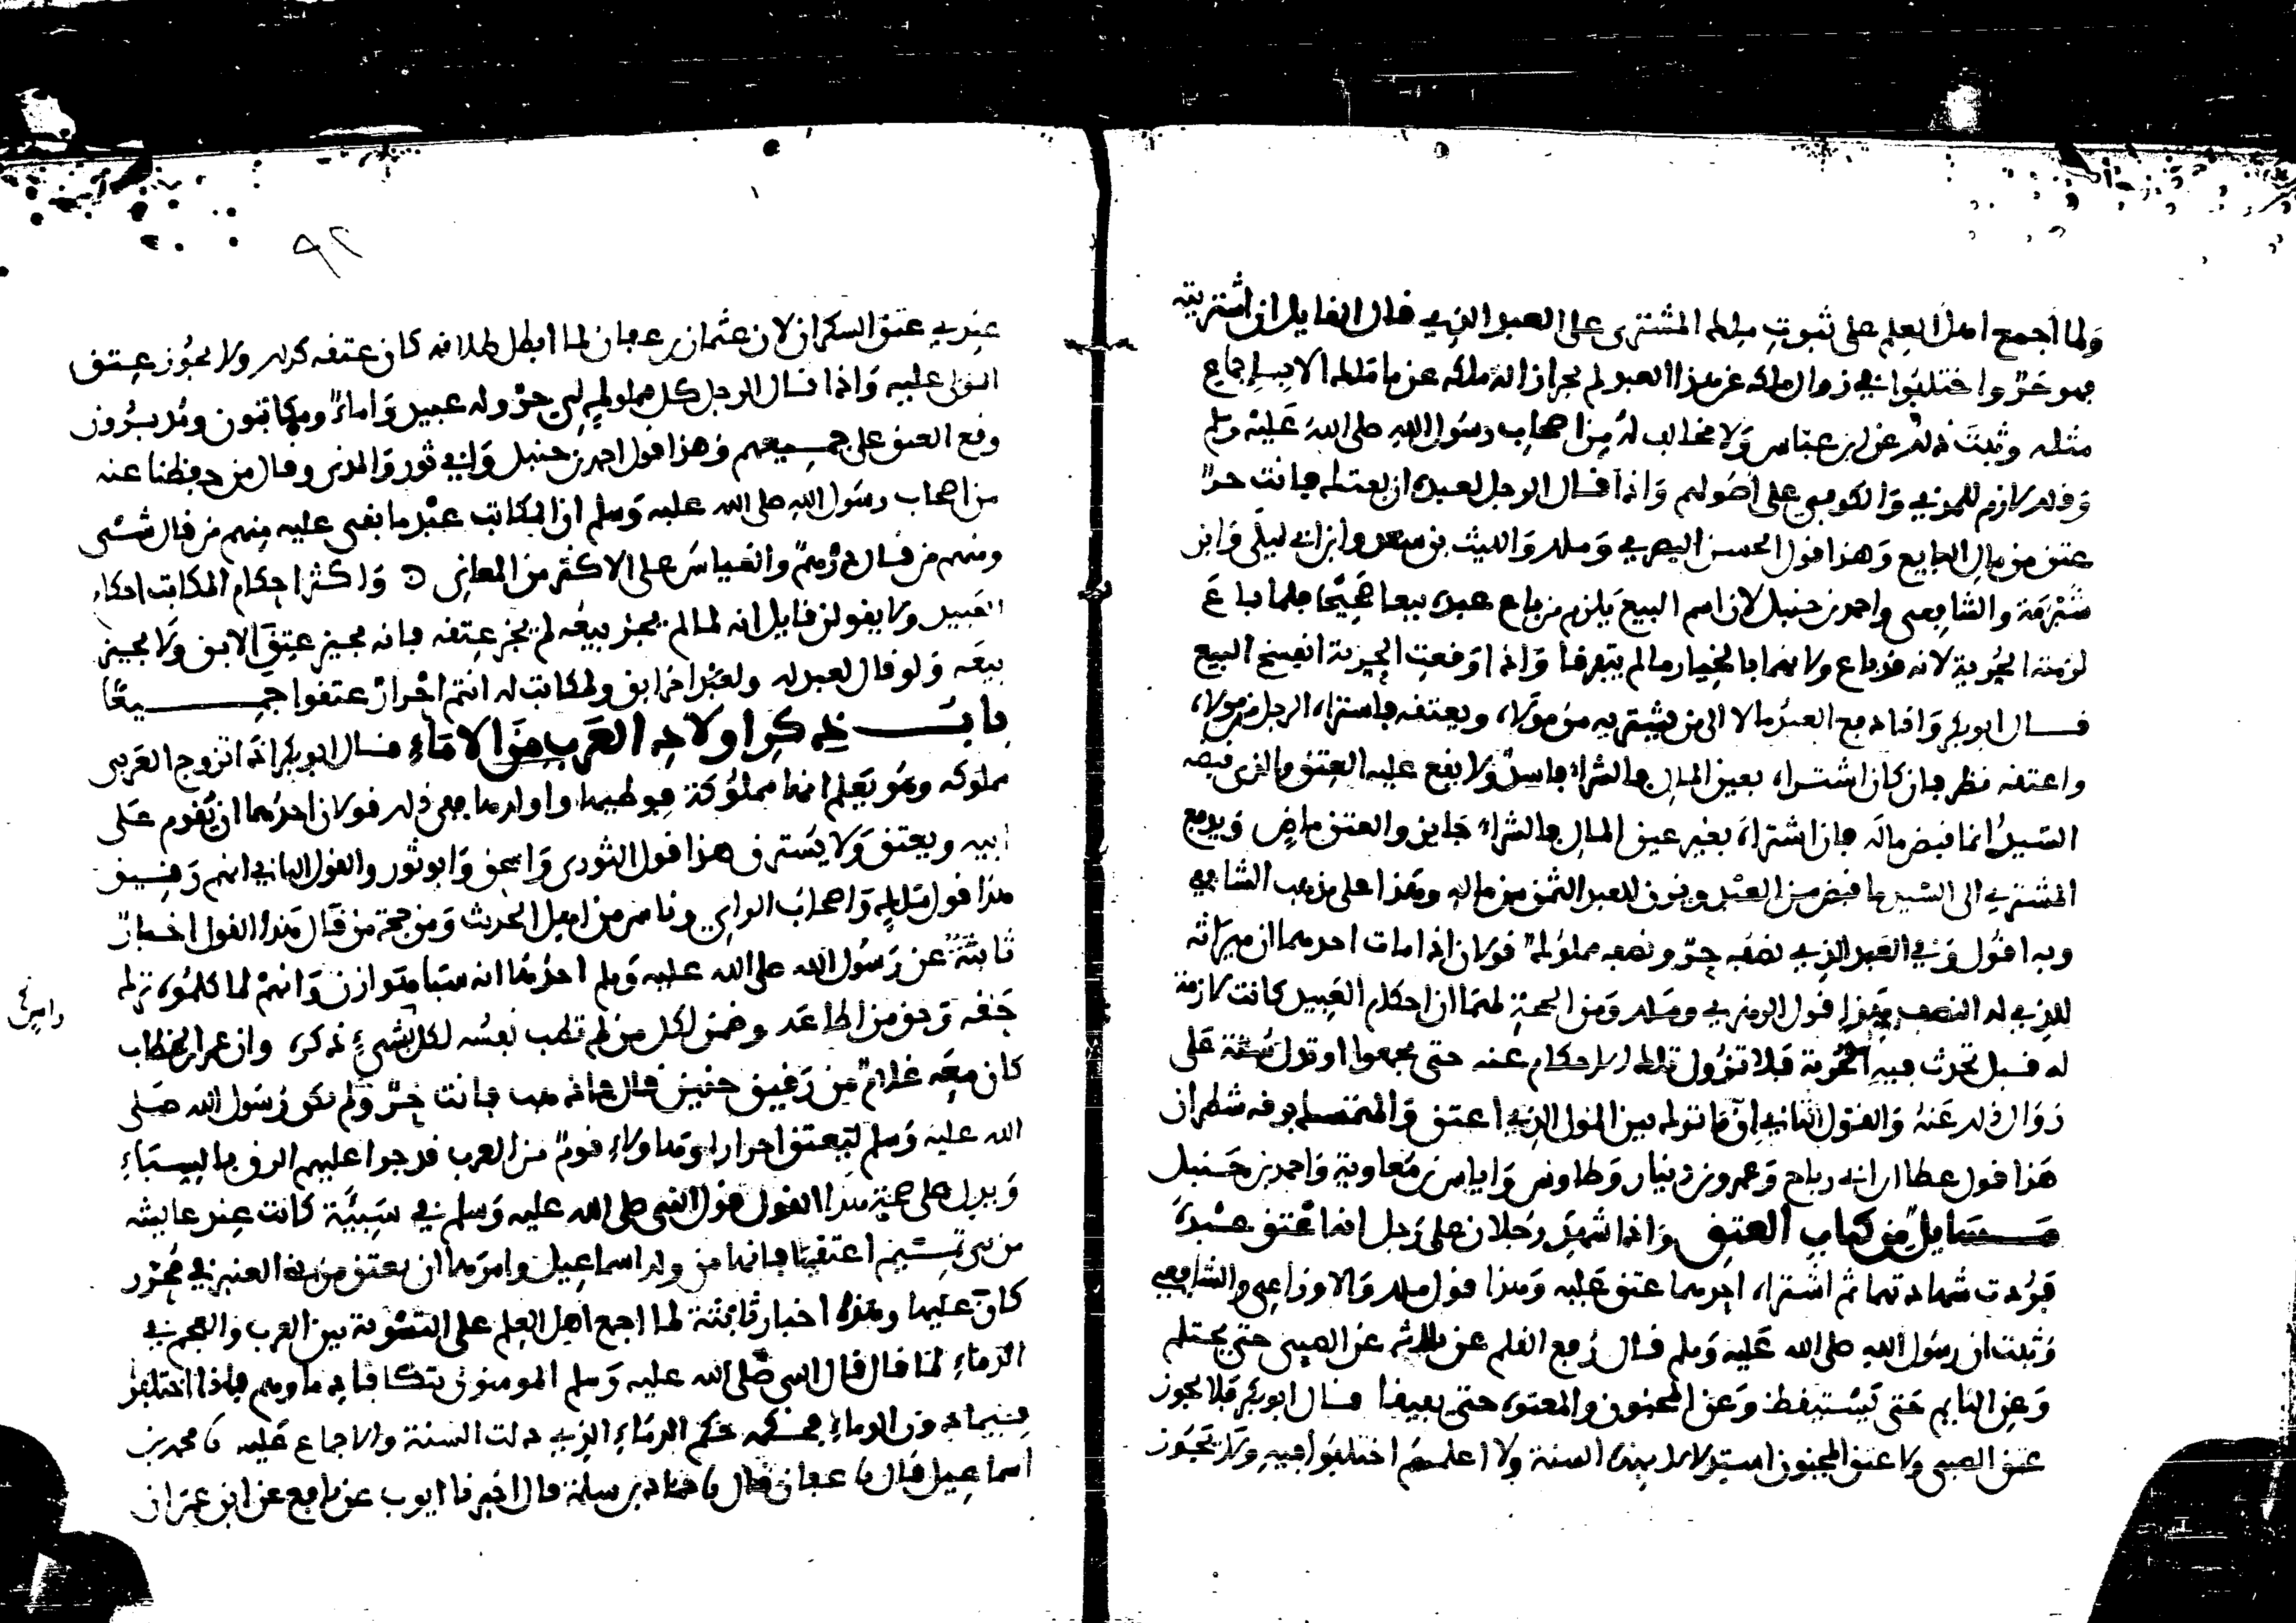 ولما أجمع اهل العلم على ثبوت ملك المشترى على العبد الذي قال القايل ان اشتريته
فهو حر واختلفوا في زوال ملكه عن هذا العبد لم يجز ازالة ملكه عن ما ملكه الا باجماع
مثله وثبت ذلك عن ابن عباس ولا مخالف له من اصحاب رسول الله صلى الله عليه وسلم
وذلك لازم للمزني والكوفي على اصولهم واذا قال الرجل لعبده ان بعتك فانت حر
عتق من مال البايع وهذا قول الحسن البصري وملك والليث بن سعد وابن ابي ليلى وابن
شبرمة والشافعى واحمد بن حنبل لان اسم البيع يلزم من باع عبده بيعا صحيحا فلما باع
لزمته الحرية لانه قد باع ولانهما بالخيار ما لم يتفرقا واذا وقعت الحرية انفسخ البيع
قال ابو بكر واذا دفع العبد مالا الى من يشتريه من مولاه ويعتقه فاشتراه الرجل من مولاه
واعتقه نظر فان كان اشتراه بعين المال فالشراء فاسد ولا يقع عليه العتق والذى قبضه
السيد انما قبض ماله فان اشتراه بغير عين المال فالشراء جايز والعتق ماض ويدفع
المشتري الى السيد ما قبض من العبد ويزن للعبد الثمن من ماله وهذا على مذهب الشافعي
وبه اقول وفي العبد الذي نصفه حر ونصفه مملوك قولان اذا مات احدهما ان ميراثه
للذي له النصف وهذا قول الزهري وملك ومن الحجة لهما ان احكام العبيد كانت لازمة
له قبل تحدث فيه الحرية فلا تزول تلك الاحكام عنه حتى يجمعوا او تدل سنة على
زوال ذلك عنه والقول الثاني ان ما ترك بين المولى الذي اعتق والمتمسك برقه شطران
هذا قول عطا ابن ابي رباح وعمرو بن دينار وطاوس واياس بن معاوية واحمد بن حنبل
مسايل من كتاب العتق واذا شهد رجلان على رجل انه اعتق عبده
فردت شهادتهما ثم اشتراه احدهما عتق عليه وهذا قول ملك والاوزاعى والشافعي
وثبت ان رسول الله صلى الله عليه وسلم قال رفع القلم عن ثلاثة عن الصبى حتى يحتلم
وعن النايم حتى يستيقظ وعن المجنون والمعتوه حتى يفيقا قال ابو بكر فلا يجوز
عتق الصبى ولا عتق المجنون استدلالا بهذه السنة ولا اعلمهم اختلفوا فيه ولا يجوز
٩٢
عندي عتق السكران لان عثمان بن عفان لما ابطل طلاقه كان عتقه كذلك ولا يجوز عتق
المولى عليه واذا قال الرجل كل مملوك لي حر وله عبيد واماء ومكاتبون ومدبرون
وقع العتق على جميعهم وهذا قول احمد بن حنبل وابي ثور والمزنى وقال من حفظنا عنه
من اصحاب رسول الله صلى الله عليه وسلم ان المكاتب عبد ما بقى عليه منهم من قال شىء
ومنهم من قال درهم والقياس على الاكثر من المعانى ه واكثر احكام المكاتب احكام
العبيد ولا يقولن قايل انه لما لم يجز بيعه لم يجز عتقه فانه يجيز عتق الابق ولا يجيز
بيعه ولو قال لعبد له ولعبد ابق ولمكاتب له انتم احرار عتقوا جميعا
باب ذكر اولاد العرب من الاماء قال ابو بكر اذا تزوج العربى
مملوكه وهو يعلم انها مملوكة فوطيها واولدها ففى ذلك قولان احدهما ان يقوم على
ابيه ويعتق ولا يسترق هذا قول الثورى واسحق وابو ثور والقول الثاني انهم رقيق
هذا قول ملك واصحاب الراي وناس من اهل الحديث ومن حجة من قال هذا القول اخبار
ثابتة عن رسول الله صلى الله عليه وسلم احدها انه سبا هوازن وانهم لما كلموه ترك
حقه وحق من اطاعه وضمن لكل من لم تطب نفسه لكل شىء ذكره وان عمر بن الخطاب
كان معه غلام من رقيق حنين فقال له اذهب فانت حر ولم يكن رسول الله صلى
الله عليه وسلم ليعتق احرارا وهاولاء قوم من العرب قد جرا عليهم الرق بالسباء
ويدل على صحة هذا القول قول النبى صلى الله عليه وسلم في سبية كانت عند عايشه
من بنى تميم اعتقيها فانها من ولد اسماعيل وامرها ان تعتق من بنى العنبر في محرر
كان عليها وهذه اخبار ثابتة لما اجمع اهل العلم على التسوية بين العرب والعجم في
الدماء لما قال قال النبى صلى الله عليه وسلم المومنون تتكافا دماوهم فاذا اختلفوا
فيما دون الدماء فحكمه حكم الدماء الذي دلت السنة والاجماع عليه نا محمد بن
اسماعيل قال نا عفان قال نا حماد بن سلمة قال اخبرنا ايوب عن نافع عن ابن عمر ان